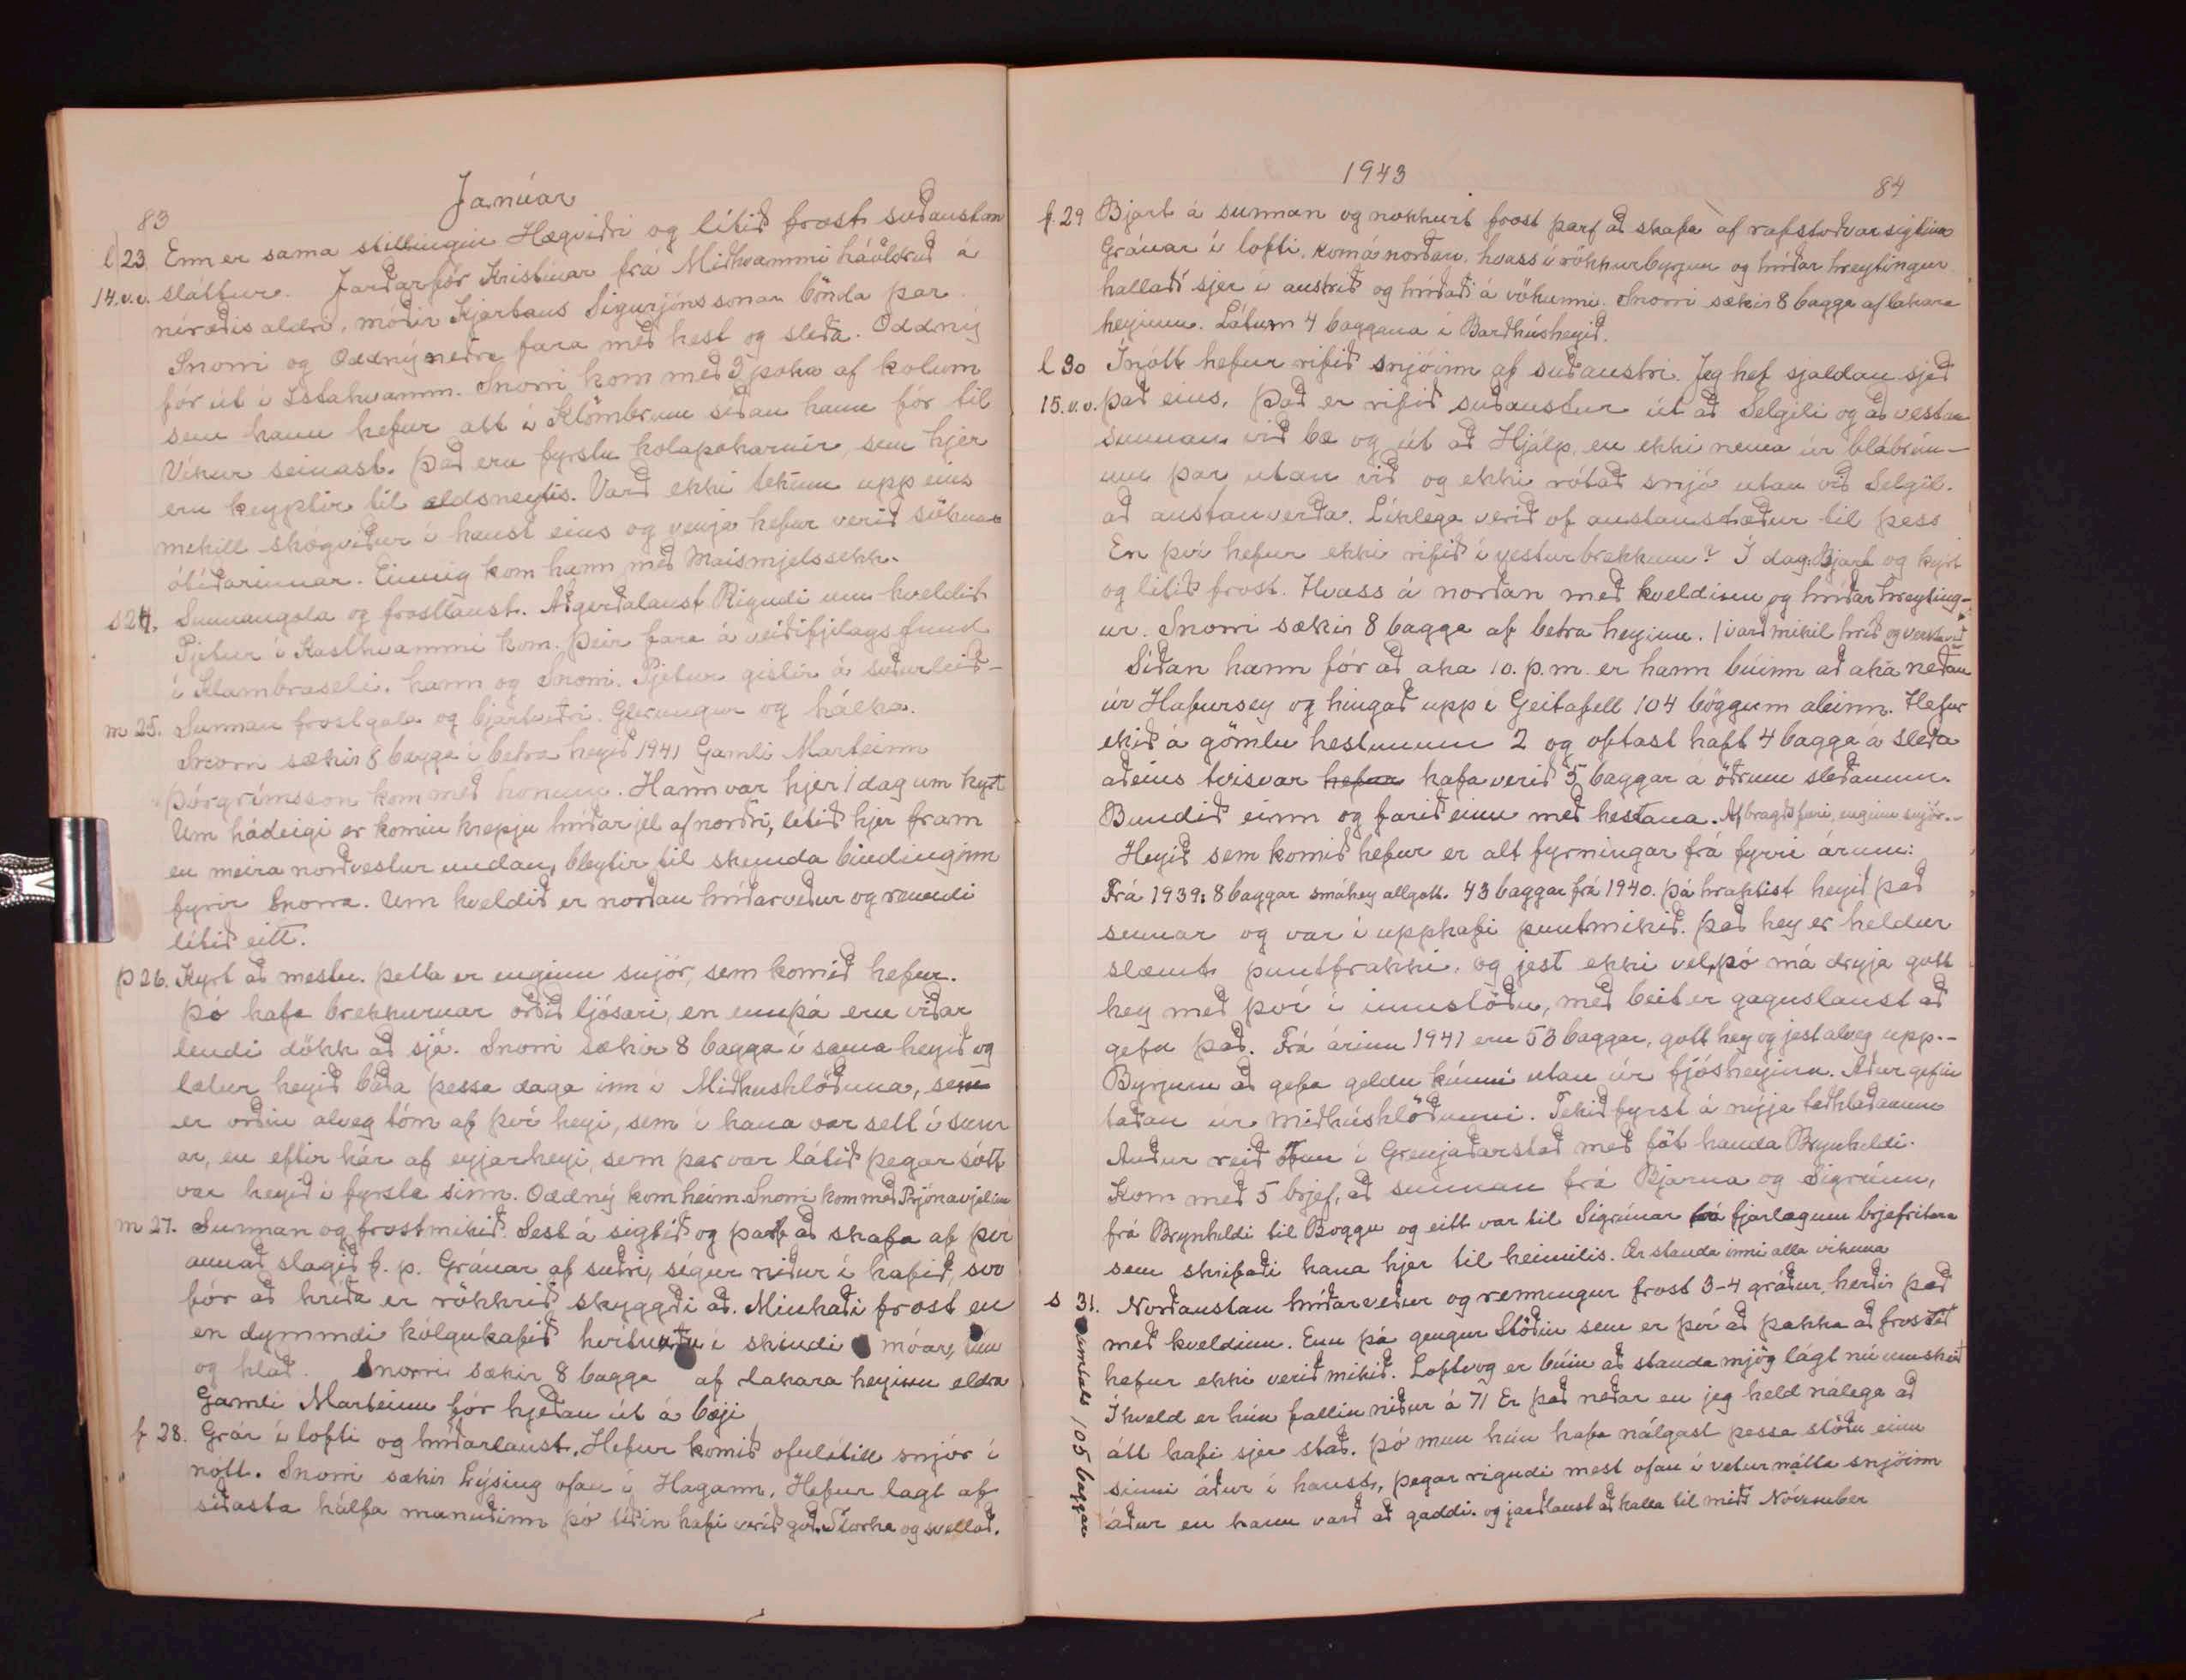 83
Janúar
l 23 Enn er sama stillingin Hægviðri og lítið frost suðaustan
14.v.v. sláttur. Jarðarför Kristínar frá Miðhvammi háöldruð á
níræðis aldri, móðir Kjartans Sigurjónssonar bónda þar.
Snorri og Oddný neðra fara með hest og sleða. Oddný
fór út í Ístahvamm. Snorri kom með 5 poka af kolum
sem hann hefur átt í Klömbrum síðan hann fór til
Víkur seinast. Það eru fyrstu kolapokarnir, sem hjer
eru keyptir til eldsneytis. Varð ekki tekinn upp eins
mikill skógviður í haust eins og venja hefur verið sökum
ótíðarinnar. Einnig kom hann með Maismjelssekk.
s 24. Sunnangola og frostlaust. Aðgerðalaust Rigndi um kveldið
Pjetur í Kasthvammi kom. Þeir fara á veiðifjelagsfund
í Klambraseli, hann og Snorri. Pjetur gistir á suðurleið-
m 25. Sunnan frostgola og bjartviðri. Glerungur og hálka.
Snorri sækir 8 bagga í betra heyið 1941 Gamli Marteinn
Þórgrímsson kom með honum. Hann var hjer 1 dag um kyrt
Um hádeigi er komin krepju hríðarjel af norðri, lítið hjer fram
en meira norðvestur undan, bleytir til skynda bindinginn
fyrir Snorra. Um kveldið er norðan hríðarveður og renndi
lítið eitt.
þ 26. Kyrt að mestu. Þetta er enginn snjór, sem komið hefur.
Þó hafa brekkurnar orðið ljósari, en ennþá eru víðar
lendi dökk að sjá. Snorri sækir 8 bagga í sama heyið og
lætur heyið báða þessa daga inn í Miðhushlöðuna, sem
er orðin alveg tóm af því heyi, sem í hana var sett í sum
ar, en eftir hár af eyjarheyi, sem þar var látið þegar sótt
var heyið í fyrsta sinn. Oddný kom heim. Snorri kom með Prjónavjelina
m 27. Sunnan og frostmikið. Sest á sigtið og þarf að skafa af því
annað slagið f. p. Gránar af suðri, sígur niður í hafið, svo
fór að hríða er rökkrið skyggði að. Minkaði frost en
en dymmdi kólgukafið hvítnaði í skindi móar, tún
og hlað. Snorri sækir 8 bagga af lakara heyinu eldra
Gamli Marteinn fór hjeðan út á bæji
f 28. Grár í lofti og hríðarlaust. Hefur komið ofulítill snjór í
nótt. Snorri sækir Lýsing ofan í Hagann. Hefur lagt af
síðasta hálfa mánuðinn þó tíðin hafi verið góð. Storka og svellað.
1943
84
f. 29 Bjart á sunnan og nokkurt frost þarf að skafa af rafstöðvarsigtinu
Gránar í lofti. kom á norðan, hvass í rökkurbyrjun og hríðar hreytingur
hallaði sjer í austrið og hríðaði á vökunni. Snorri sækir 8 bagga af lakara
heyinu. Látum 4 baggana í Barðhúsheyið.
l 30 Í nótt hefur rifið snjóinn af suðaustri. Jeg hef sjaldan sjeð
15. v. v. það eins. Það er rifið suðaustur út að Selgili og að vestan
sunnan við bæ og út að Hjálp, en ekki nema úr blábrún-
um þar utan við og ekki rótað snjó utan við Selgil.
að austanverða. Líklega verið of austanstæður til þess
En því hefur ekki rifið í vesturbrekkum? Í dag: Bjart og kyrt
og lítið frost. Hvass á norðan með kveldinu og hríðar hreyting-
ur. Snorri sækir 8 bagga af betra heyinu. / varð mikil hríð og versta veð
Síðan hann fór að aka 10. þ. m. er hann búinn að aka neðan
úr Hafursey og hingað upp í Geitafell 104 böggum aleinn. Hefur
ekið á gömlu hestunum 2 og oftast haft 4 bagga á sleða
aðeins tvisvar hefur hafa verið 5 baggar á öðrum sleðanum.
Bundið einn og farið einn með hestana. Afbragðsfæri, enginn snjór.-
Heyið sem komið hefur er alt fyrningar frá fyrri árum:
Frá 1939: 8 baggar smáhey allgott. 43 baggar frá 1940. Þá hraktist heyið það
sumar og var í upphafi puntmikið. Það hey er heldur
slæmt puntfrakki, og jest ekki vel, þó má dryja gott
hey með því í innustöðu, með beit er gagnslaust að
gefa það. Frá árinu 1941 eru 53 baggar, gott hey og jest alveg upp.-
Byrjum að gefa geldu kúnni utan úr fjósheyinu. Áður gefin
taðan úr miðhúshlöðunni. Tekið fyrst á nýja taðhlaðanum
Auður reið ofan í Grenjaðarstað með föt handa Brynhildi.
Kom með 5 brjef, að sunnan frá Bjarna og Sigrúnu,
frá Brynhildi til Boggu og eitt var til Sigrúnar frá fjarlægum brjefritara
sem skrifaði hana hjer til heimilis. Ær standa inni alla vikuna
s 31. Norðaustan hríðarveður og renningur frost 3-4 gráður, herðir það
með kveldinu. Enn þá gengur Stöðin sem er því að þakka að frostið
hefur ekki verið mikið. Loftvog er búin að standa mjög lágt nú um skeið
Í kveld er hún fallin niður á 71 Er það neðar en jeg held nálega að
átt hafi sjer stað. Þó mun hún hafa nálgast þessa stöðu einu
sinni áður í haust, þegar rigndi mest ofan í veturnátta snjóinn
áður en hann varð að gaddi. og jarðlaust að kalla til mið Nóvember
Samtals 105 baggar